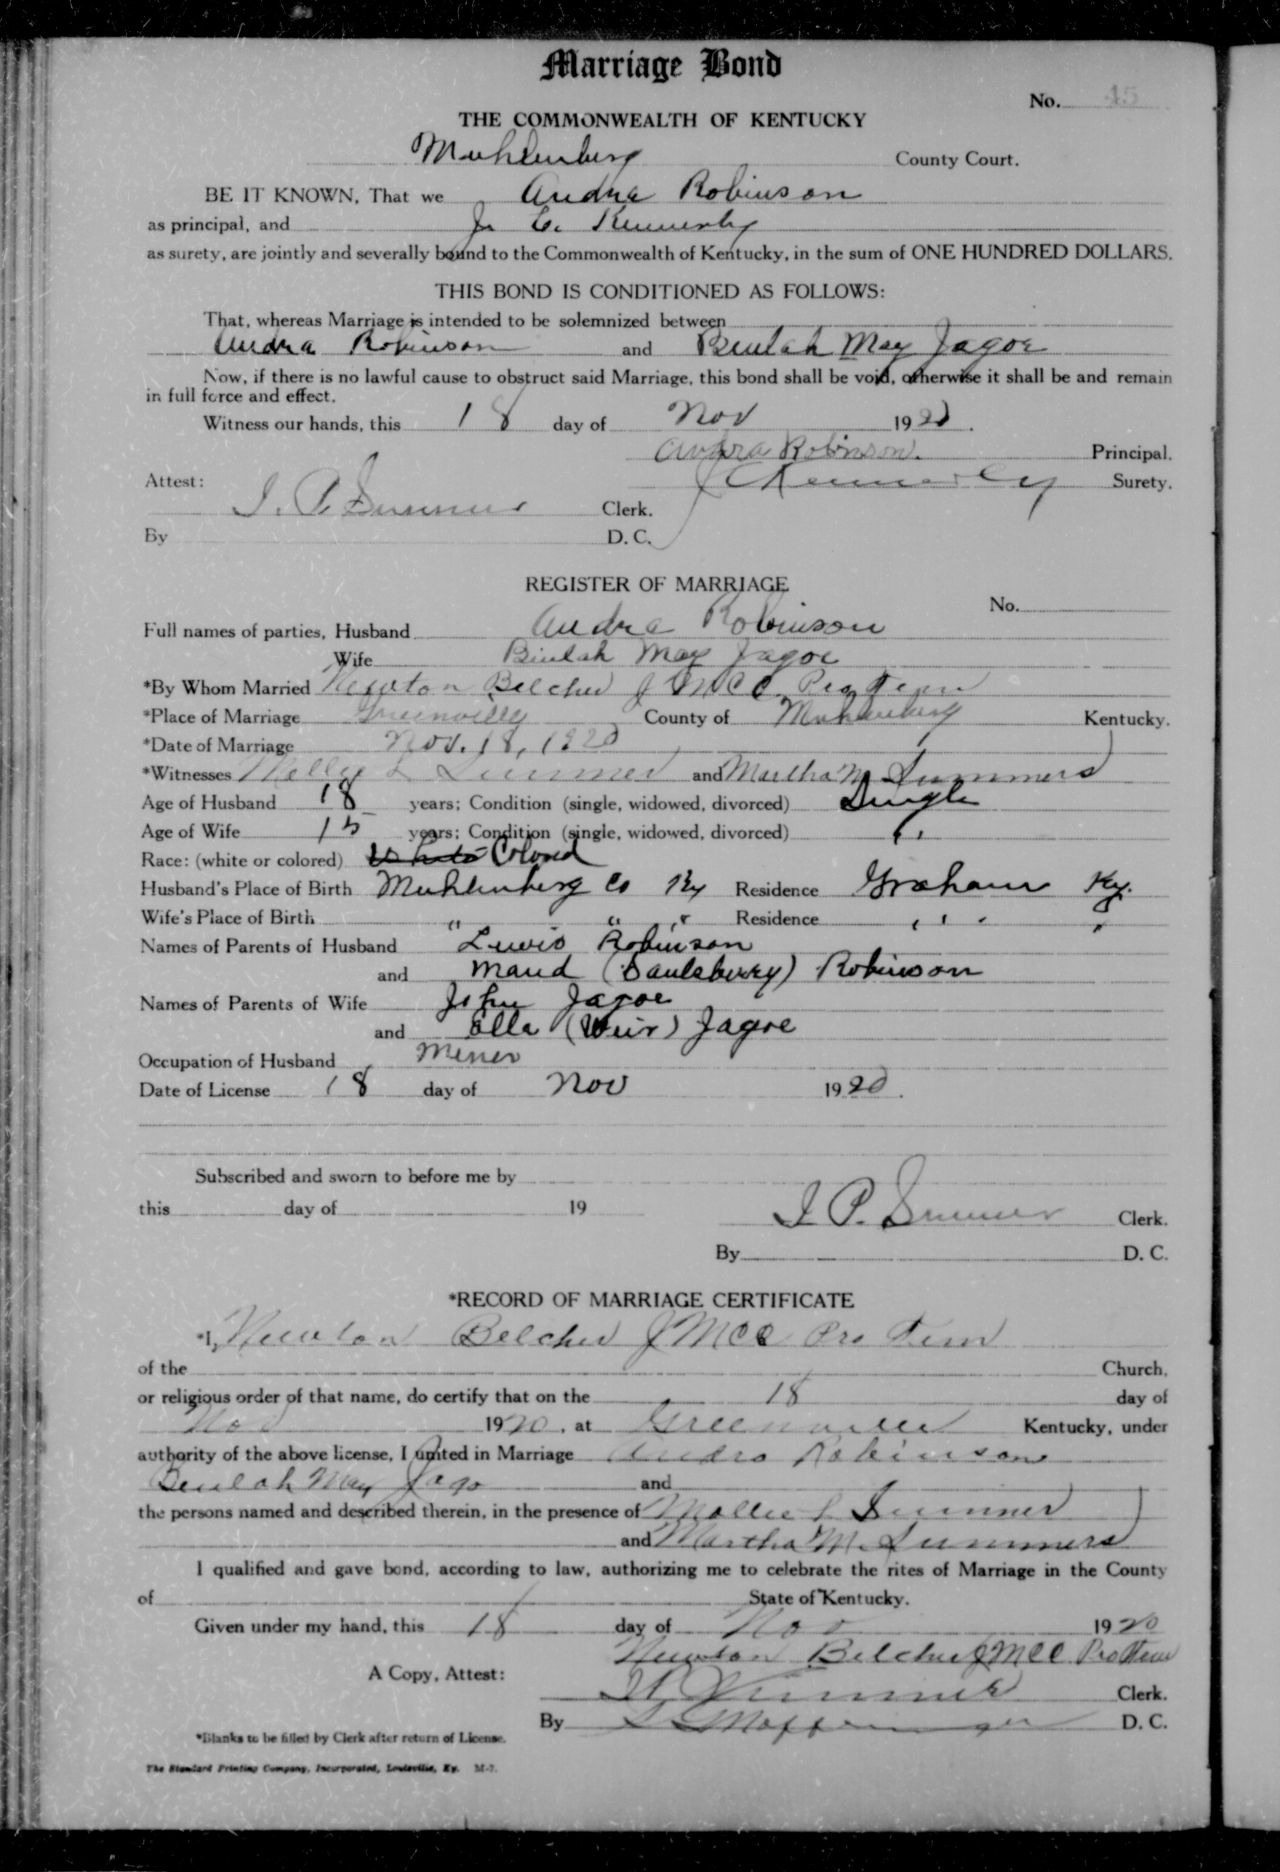 Marriage Bond
No. 45
THE COMMONWEALTH OF KENTUCKY
Muhlenberg County Court.
BE IT KNOWN, That we Andra Robinson
as principal, and J. C. Kennerly
as surety, are jointly and severally bound to the Commonwealth of Kentucky, in the sum of ONE HUNDRED DOLLARS.
THIS BOND IS CONDITIONED AS FOLLOWS:
That, whereas Marriage is intended to be solemnized between
Andra Robinson and Beulah May Jagoe
Now, if there is no lawful cause to obstruct said Marriage, this bond shall be void, otherwise it shall be and remain
in full force and effect.
Witness our hands, this 18 day of Nov 1920.
Andra Robinson. Principal.
J C Kennerly Surety.
Attest:
I. P. Summer Clerk.
By D. C.
REGISTER OF MARRIAGE
No.
Full names of parties, Husband Andra Robinson
Wife Beulah May Jagoe
*By Whom Married Newton Belcher J M C C Pro Tem
*Place of Marriage Greenville County of Muhlenberg Kentucky.
*Date of Marriage Nov. 18, 1920
*Witnesses Mollie L Summer and Martha M. Summers
Age of Husband 18 years; Condition (single, widowed, divorced) Single
Age of Wife 15 years; Condition (single, widowed, divorced) "
Race: (white or colored) White Colored
Husband's Place of Birth Muhlenberg Co Ky Residence Graham Ky.
Wife's Place of Birth " " " Residence " "
Names of Parents of Husband Lewis Robinson
and Maud (Saulsberry) Robinson
Names of Parents of Wife John Jagoe
and Ella (Weir) Jagoe
Occupation of Husband Miner
Date of License 18 day of Nov 1920.
Subscribed and sworn to before me by
this day of 19
I P. Summer Clerk.
By D. C.
*RECORD OF MARRIAGE CERTIFICATE
*I, Newton Belcher J M C C Pro Tem
of the Church,
or religious order of that name, do certify that on the 18 day of
Nov 1920, at Greenville Kentucky, under
authority of the above license, I united in Marriage Andra Robinson
Beulah May Jago and
the persons named and described therein, in the presence of Mollie L Summer
and Martha M. Summers
I qualified and gave bond, according to law, authorizing me to celebrate the rites of Marriage in the County
of State of Kentucky.
Given under my hand, this 18 day of Nov 1920
Newton Belcher J M C C Pro Tem
A Copy, Attest:
I P Summer Clerk.
By D. C.
*Blanks to be filled by Clerk after return of License.
The Standard Printing Company, Incorporated, Louisville, Ky. M-7.